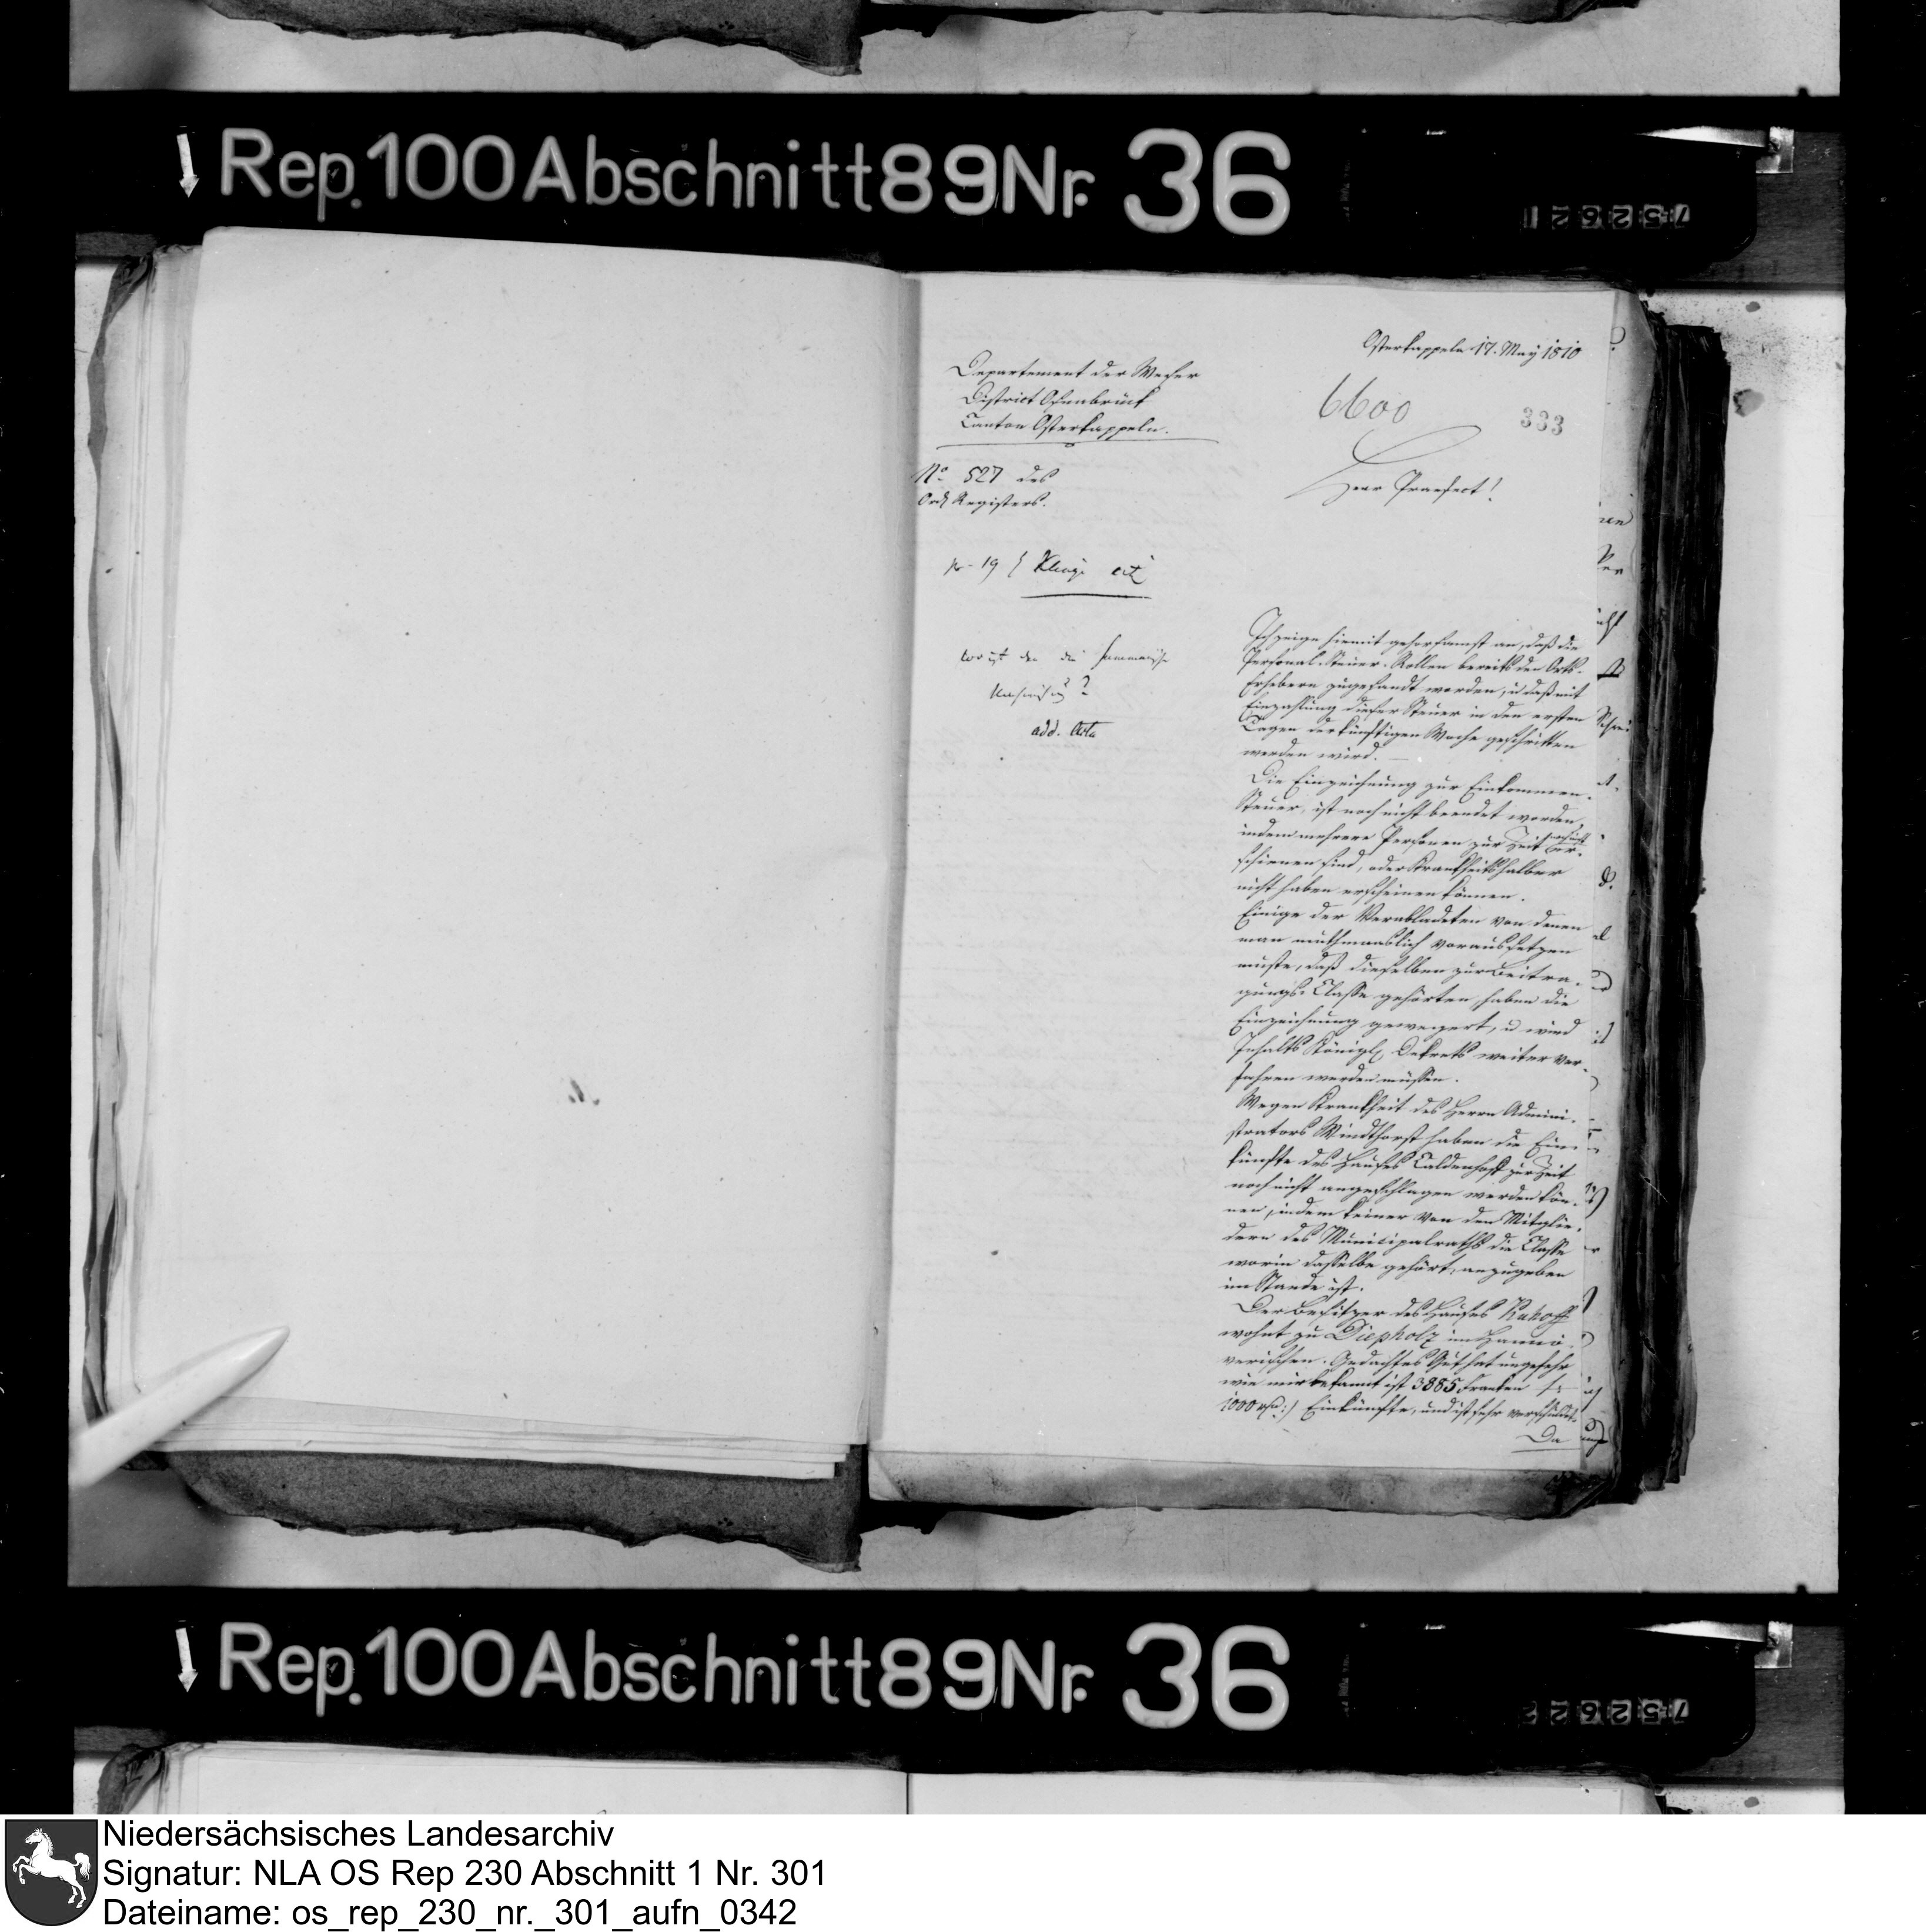 Rep. 100 Abschnitt 89 Nr. 36
752621
Osterkappeln 17. May 1810
Departement der Weser
District Osnabrück
Canton Osterkappeln.
6600
333
No 527 des
Registers.
Herr Praefect!
pr. 19
add. Acta
Ich zeige hiemit gehorsamst an, daß die
Personal-Steuer-Rollen bereits den Orts-
Erhebern zugesandt worden, u daß mit
Einzahlung dieser Steuer in den ersten
Tagen der künftigen Woche geschritten
werden wird. —
Die Einzeichnung zur Einkommen-
Steuer, ist noch nicht beendet worden,
indem mehrere Personen zur Zeit er-
schienen sind, oder Krankheitshalber
nicht haben erscheinen können.
Einige der Verabladeten von denen
man muthmaaslich voraussetzen
muste, daß dieselben zur Beitra-
gungs-Classe gehörten, haben die
Einzeichnung geweigert, u wird
Inhalts Königl. Dekrets weiter ver-
fahren werden müssen.
Wegen Krankheit des Herrn Admini-
strators Windthorst haben die Ein-
künfte des Hauses Caldenhoff zur Zeit
noch nicht angeschlagen werden kön-
nen, indem keiner von den Mitglie-
dern des Municipalraths die Classe
worin dasselbe gehört, anzugeben
im Stande ist.
Der Besitzer des Hauses Kuhoff
wohnt zu Diepholz im Hannö-
verischen. Gedachtes Guth hat ungefehr
wie mir bekannt ist 3885 Franken
1000 rthl:) Einkünfte, und ist sehr verschuldet.
Da
Rep. 100 Abschnitt 89 Nr. 36
752622
Niedersächsisches Landesarchiv
Signatur: NLA OS Rep 230 Abschnitt 1 Nr. 301
Dateiname: os_rep_230_nr._301_aufn_0342